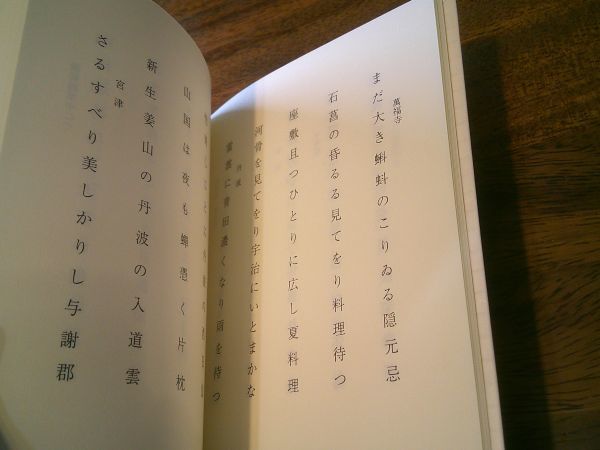 萬福寺
まだ大き蝌蚪のこりゐる隠元忌
石菖の昏るる見てをり料理待つ
座敷且つひとりに広し夏料理
河骨を見てをり宇治にいとまかな
丹波
に青田濃くなり雨を待つ
山国は夜も蝉憑く片枕
新生姜山の丹波の入道雲
宮津
さるすべり美しかりし与謝郡